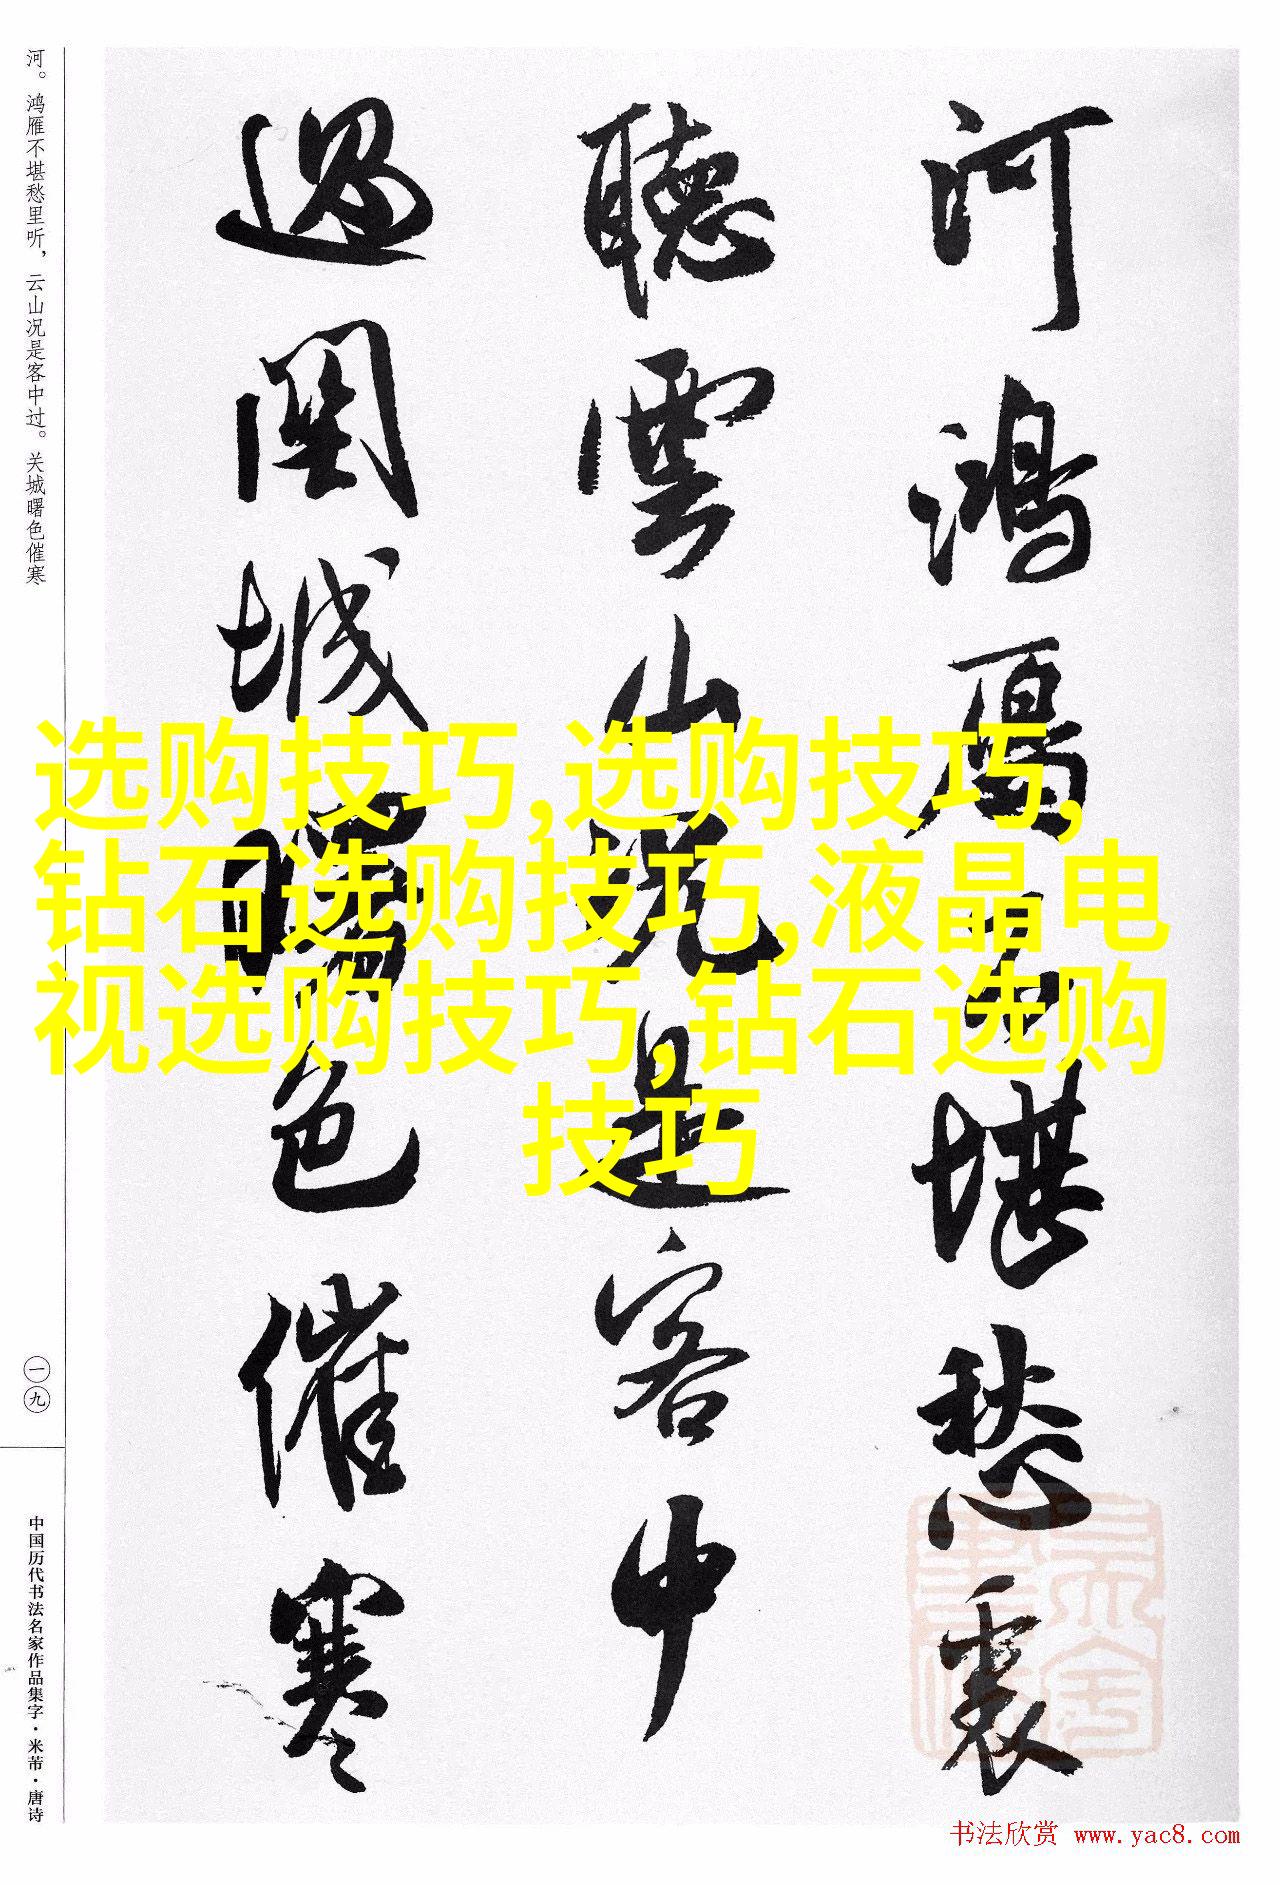 河鸿雁不堪愁裏
聽雲山况是客中
過関城曙色催寒
河。鸿雁不堪愁里听，云山况是客中过。关城曙色催寒
一九
中国历代书法名家作品集字·米芾·唐诗
选购技巧,选购技巧,
钻石选购技巧,液晶电
视选购技巧,钻石选购
技巧
书法欣赏 www.yac8.com